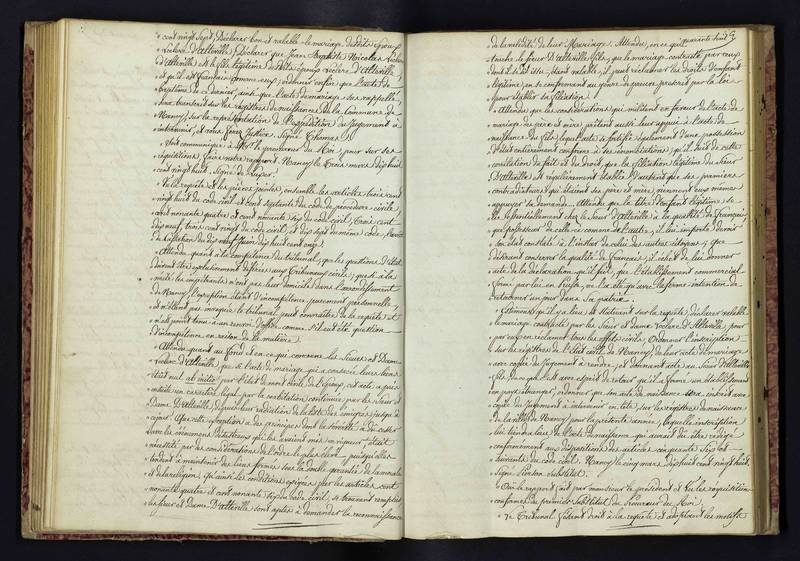 « cent vingt sept; Déclarer bon et valable le mariage desdits époux
« Leclerc d'Alteville; Déclarer que Jean Baptiste Nicolas Leclerc
« d'Alteville est le fils légitime desdits époux Leclerc d'Alteville
« et qu'il est français comme eux; ordonner enfin que l'acte de
« baptême de ce dernier, ainsi que l'acte de mariage des rappellés
« sera transcrit sur les registres de naissances de la Commune de
« Nancy, sur la représentation de l'expédition du jugement à
« intervenir, et vous ferez justice. Signé Thomas.
« Soit communiqué à Mr le procureur du Roi, pour sur ses
« réquisitions faire notre rapport. Nancy le trois mars dix huit
« cent vingt huit. Signé
« Vu la requête et les pièces jointes, ensemble les articles trois cent
« vingt huit du code civil et cent septante du code de procédure civile,
« cent nonante quatre et cent nonante sept du code civil, trois cent
« dix neuf, trois cent vingt du code civil, et dix sept du même code, l'arrêt
« de cassation du dix neuf juin dix huit cent onze.
« Attendu quant à la compétence du tribunal, que les questions d'Etat
« doivent être exclusivement déférées aux tribunaux civils; que si à la
« les impétrants n'ont pas leur domicile dans l'arrondissement
« de Nancy, l'exception étant d'incompétence purement personnelle,
« et n'étant pas invoquée le tribunal peut connaître de la requête et
« n'est point tenu à un renvoi d'office, comme s'il eut été question
« d'incompétence en raison de la matière.
« Attendu quant au fond et en ce qui concerne les Sieur et Dame
« Leclerc d'Alteville, que si l'acte de mariage qui a consacré leurs liens
« était nul ab initio par l'état de mort civile de l'époux, cet acte a pris
« ensuite un caractère légal par la cohabitation continuée par les Sieur et
« Dame d'Alteville, depuis leur radiation de la liste des émigrés jusqu'à
« ce jour. Que cette exception à des principes dont la sévérité a dû cesser
« avec les évènemens désastreux qui les avaient mis en vigueur était
« nécessité par des considérations de l'ordre le plus élevé puisqu'elles
« tendent à maintenir des liens formés sous la double garantie de la morale
« et de la religion; qu'ainsi les conditions exigées par les articles cent
« nonante quatre et cent nonante sept du code civil, se trouvant remplies
« les Sieur et Dame d'Alteville sont aptes à demander la reconnaissance
quarante huit
« de la validité de leur mariage. Attendu, en ce qui
« touche le Sieur d'Alteville fils, que le mariage contracté par ceux
« dont il est issu, étant valable, il peut réclamer les droits d'enfant
« légitime, en se conformant au genre de preuve prescrit par la loi
« pour établir sa filiation.
« Attendu que les considérations qui militent en faveur de l'acte de
« mariage des père et mère, prêtent aussi leur appui à l'acte de
« naissance du fils; que l'acte se fortifie également d'une possession
« d'état entièrement conforme à ses énonciations; qu'il suit de cette
« constitution de fait et de droit, que la filiation légitime du Sieur
« D'Alteville est régulièrement établie d'autant que ses premiers
« contradicteurs qui étaient ses père et mère, viennent eux mêmes
« appuyer sa demande... Attendu que le titre d'enfant légitime se
« lie essentiellement chez le Sieur d'Alteville à la qualité de français,
« que professeur de celle-ci comme de l'autre, il lui importe d'avoir
« son état constaté à l'instar de celui des autres citoyens; que
« désirant conserver la qualité de français, il échet de lui donner
« acte de la déclaration qu'il fait, que l'établissement commercial
« formé par lui en Russie, ne l'a été qu'avec la ferme intention de
« retourner un jour dans sa patrie.
« Estimons qu'il y a lieu en statuant sur la requête, déclarer valable
« le mariage contracté par les Sieur et dame Leclerc d'Alteville, pour
« par eux en réclamer tous les effets civils; Ordonner l'inscription
« sur les registres de l'état civil de Nancy, de leur acte de mariage
« avec copie du jugement à rendre, et donnant acte au Sieur d'Alteville
« fils, de ce que c'est avec esprit de retour qu'il a formé un établissement
« en pays étranger, ordonner que son acte de naissance sera inscrit avec
« copie du jugement à intervenir en tête, sur les registres de naissance
« de la ville de Nancy pour la présente année; laquelle inscription
« lui tiendra lieu de l'acte de naissance qui aurait dû être rédigé
« conformément aux dispositions des articles cinquante sept et
« suivants du code civil. Nancy le cinq mars dix huit cent vingt huit.
« Signé Pierson substitut.
« Oui le rapport fait par monsieur le président et vu les réquisitions
« conformes du premier substitut du Procureur du Roi.
« Le Tribunal faisant droit à la requête et adoptant les motifs